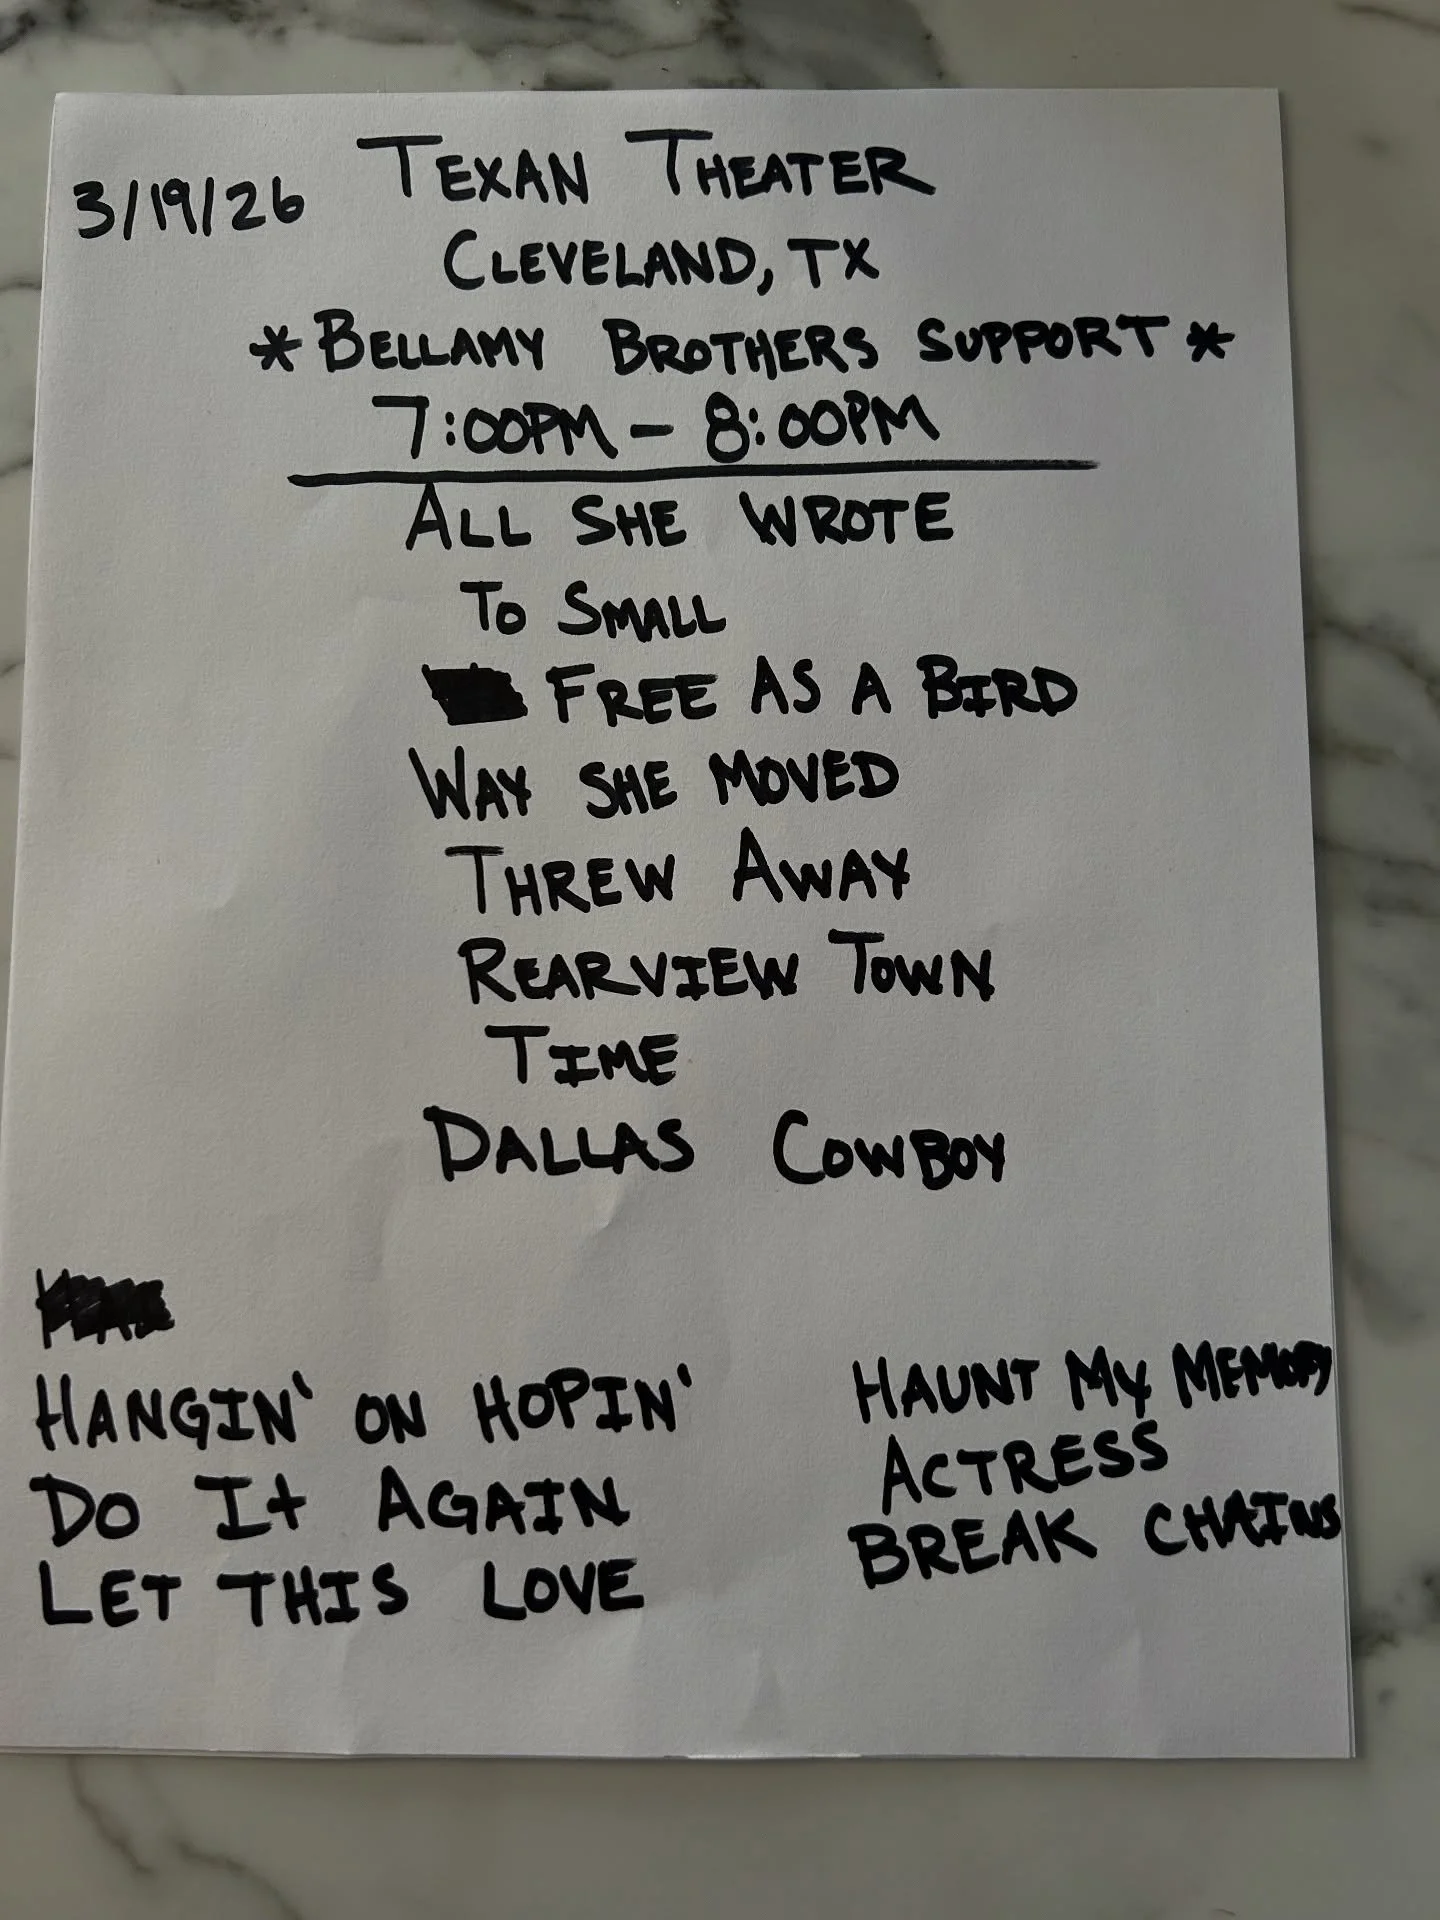 3/19/26 TEXAN THEATER
CLEVELAND, TX
* BELLAMY BROTHERS SUPPORT *
7:00PM – 8:00PM
ALL SHE WROTE
TO SMALL
FREE AS A BIRD
WAY SHE MOVED
THREW AWAY
REARVIEW TOWN
TIME
DALLAS COWBOY
HANGIN' ON HOPIN'
DO It AGAIN
LET THIS LOVE
HAUNT MY MEMORY
ACTRESS
BREAK CHAINS